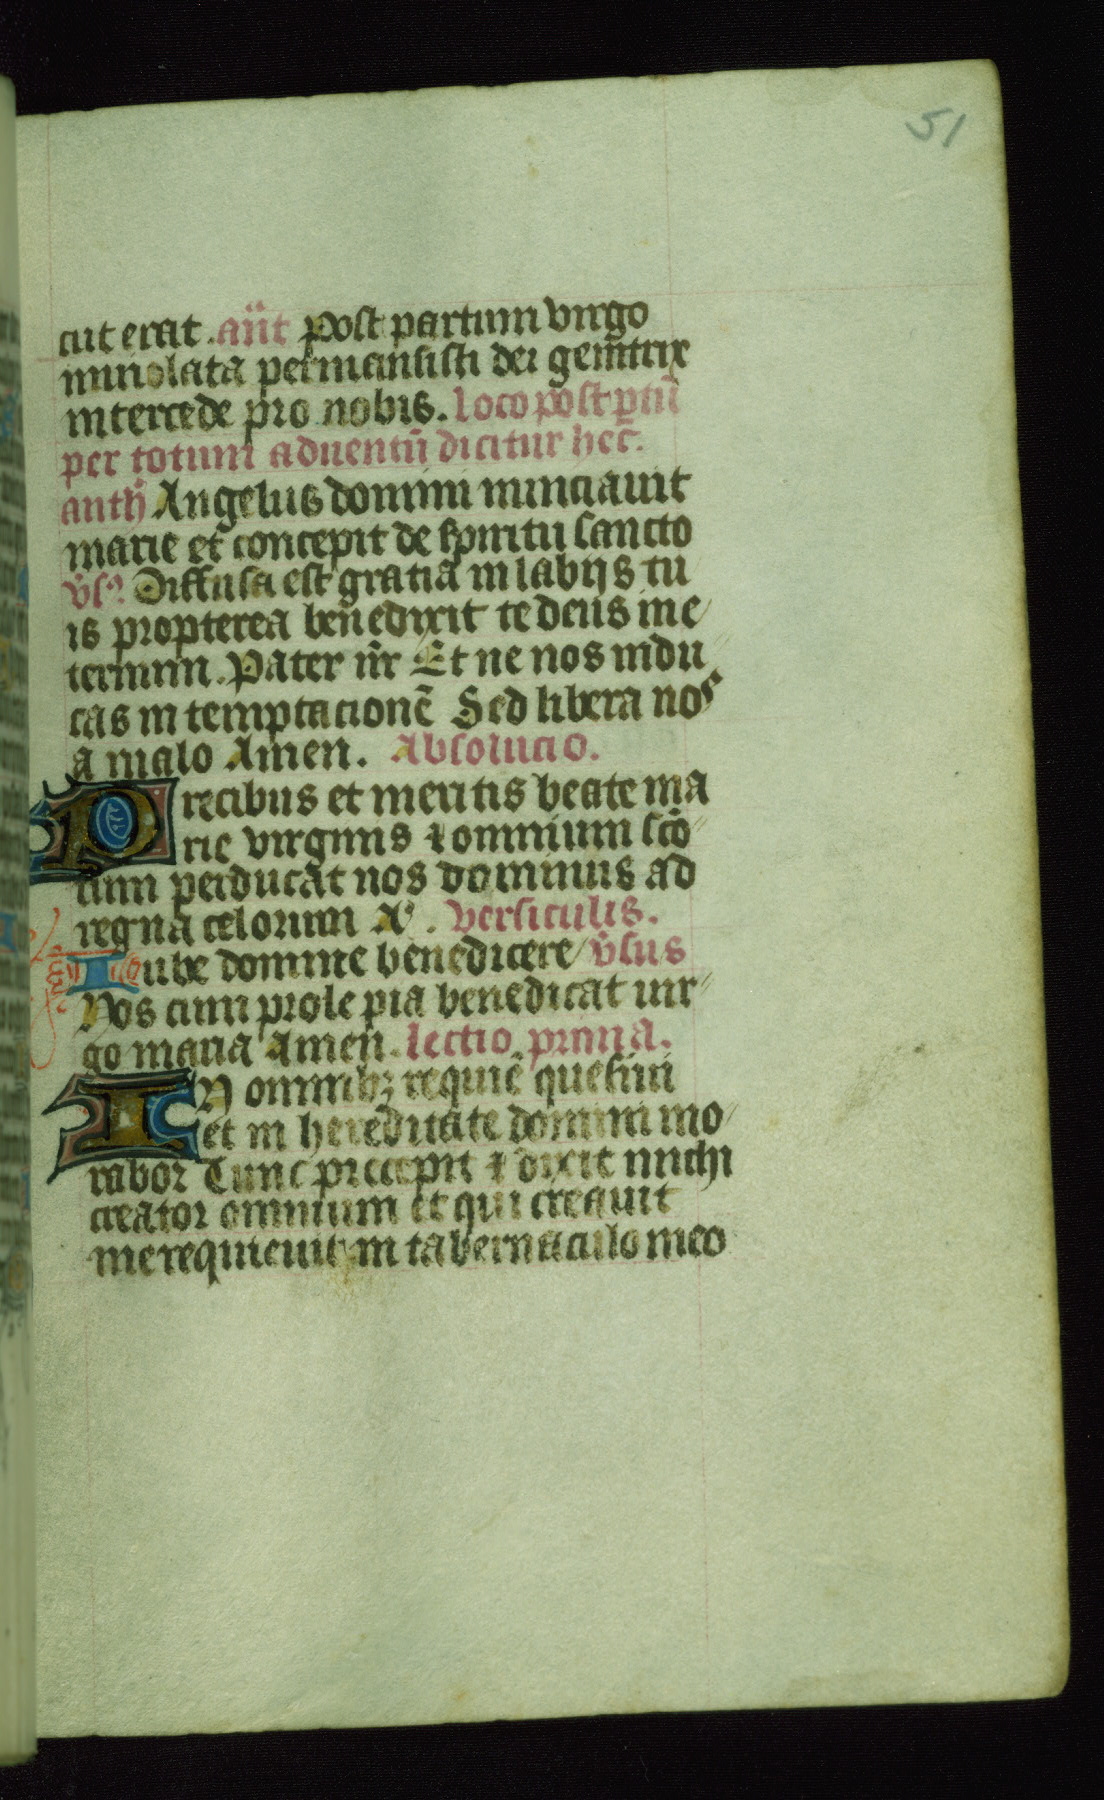 51
cut erat. añt Post partum virgo
inviolata permansisti dei genitrix
intercede pro nobis. Loco post ptū
per totum aduentū dicitur hec̄.
anth Angelus domini nunciauit
marie et concepit de spiritu sancto
v̄s. Diffusa est gratia in labijs tu
is propterea benedixit te deus in e
ternum. Pater nr̄ Et ne nos indu
cas in temptacionē Sed libera nos
a malo Amen. Absolucio.
Precibus et meritis beate ma
rie virginis ⁊ omnium sc̄o
rum perducat nos dominus ad
regna celorum A. versiculis.
Iube domine benedicere v̄sus
Nos cum prole pia benedicat uir
go maria Amen. lectio prima.
IN omnibꝫ requiē quesiui
et in hereditate domini mo
rabor Tunc precepit ⁊ dixit michi
creator omnium et qui creauit
me requieuit in tabernaculo meo